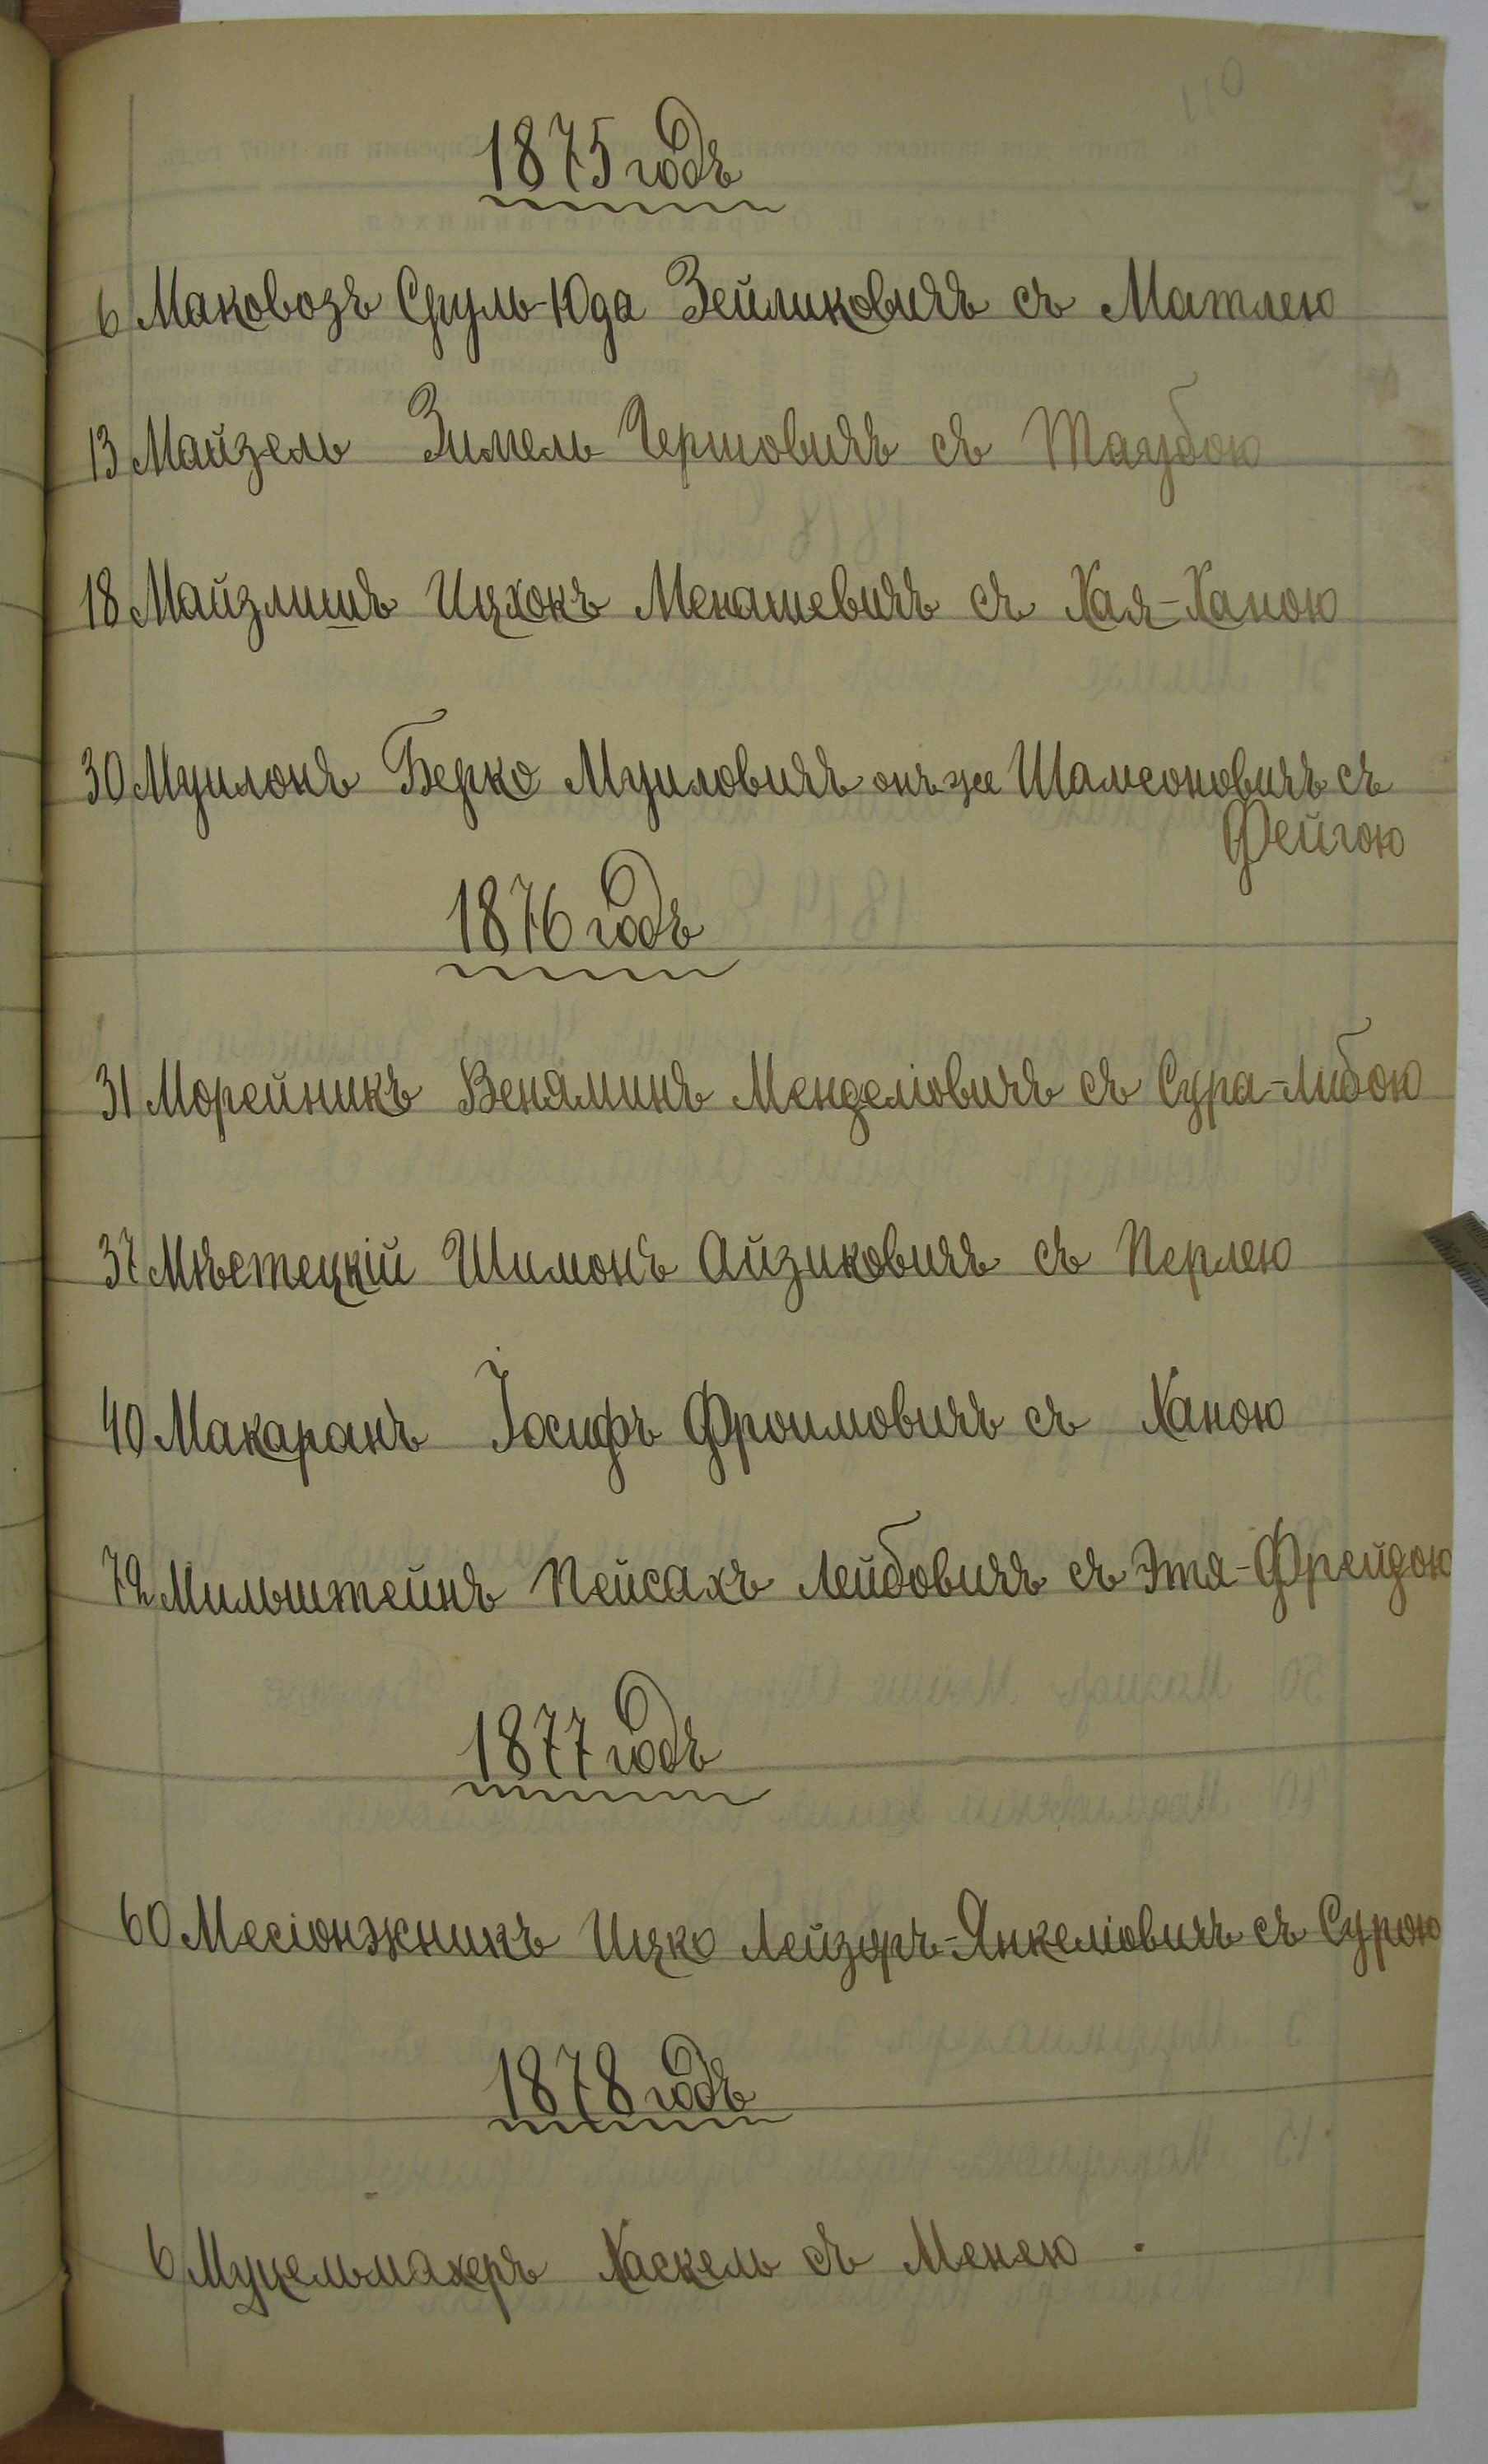 110
1875 годъ
6 Маковозъ Сруль-Юда Зейликовичъ съ Матлею
13 Майзель Зимель Гершовичъ съ Таубою
18 Майзлишъ Ицхокъ Менашевичъ съ Хая-Ханою
30 Муилонъ Берко Муиловичъ онъ же Шамсоновичъ съ
Фейгою
1876 годъ
31 Морейникъ Веняминъ Менделіовичъ съ Сура-Либою
37 Мѣстецкій Шимонъ Айзиковичъ съ Перлею
40 Макаранъ Іосифъ Фроимовичъ съ Ханою
72 Мильштейнъ Пейсахъ Лейбовичъ съ Этя-Фрейдою
1877 годъ
60 Месіонжникъ Ицко Лейзоръ-Янкеліовичъ съ Сурою
1878 годъ
6 Муцельмахеръ Хаскель съ Менею